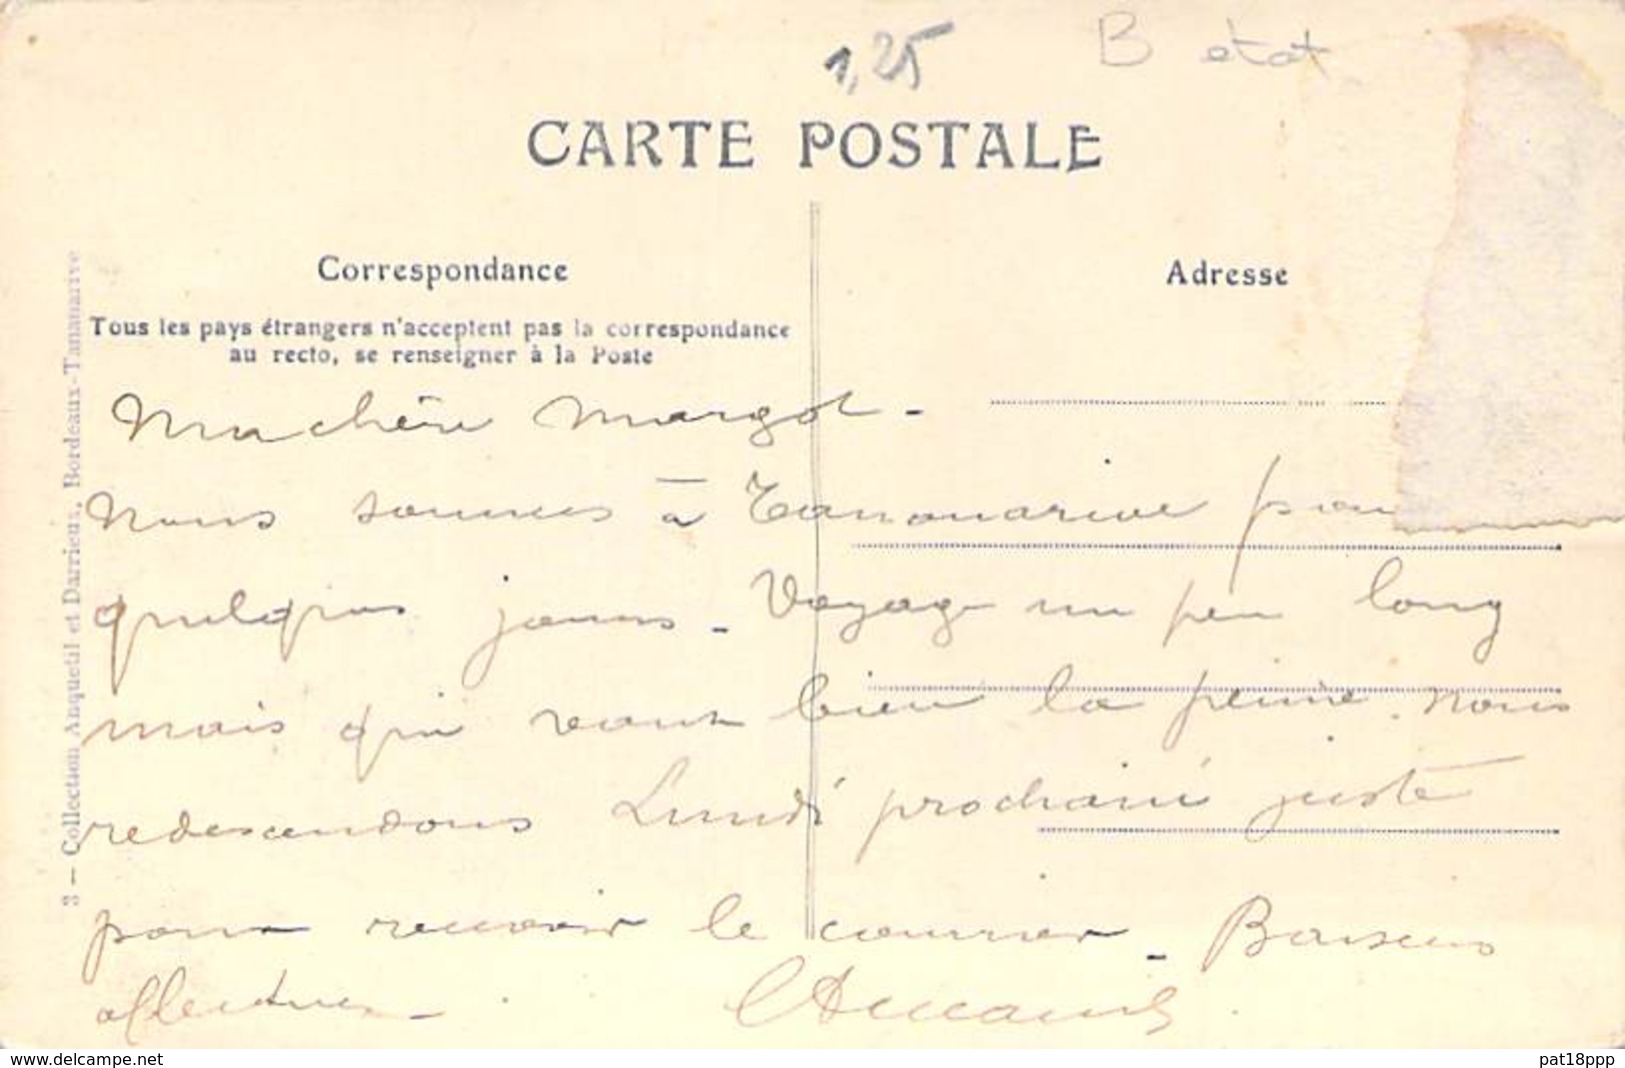 1,25
B état
CARTE POSTALE
Correspondance
Adresse
Tous les pays étrangers n'acceptent pas la correspondance
au recto, se renseigner à la Poste
3 — Collection Anquetil et Darrieux, Bordeaux-Tananarive
Ma chère Margot -
Nous sommes à Tananarive pour
quelques jours - Voyage un peu long
mais qui vaut bien la peine. Nous
redescendons Lundi prochain juste
pour recevoir le courrier - Baisers
affectueux -
www.delcampe.net
pat18ppp